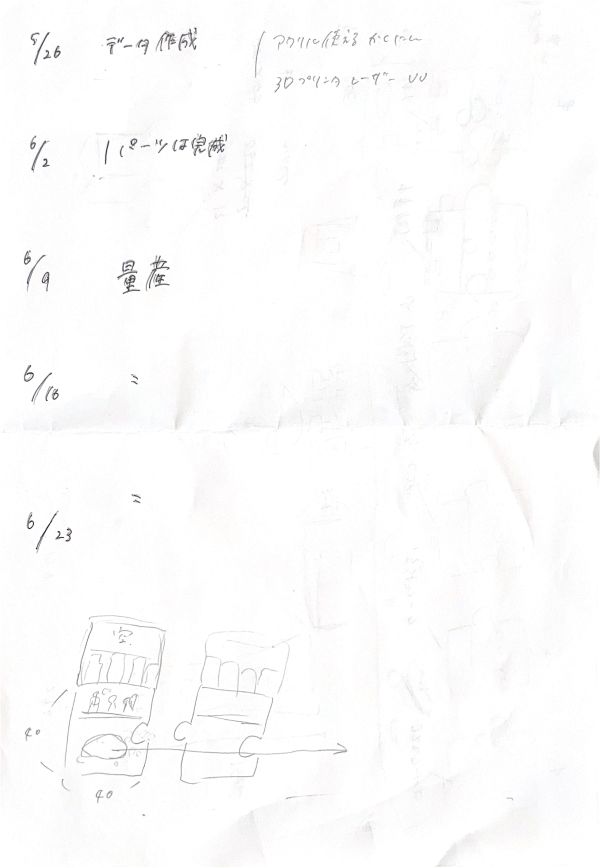 5/26 データ作成
アクリに使える かくにん
3Dプリンタ レーザー UV
6/2 1パーツは完成
6/9 量産
6/16 〃
6/23 〃
空
40
40